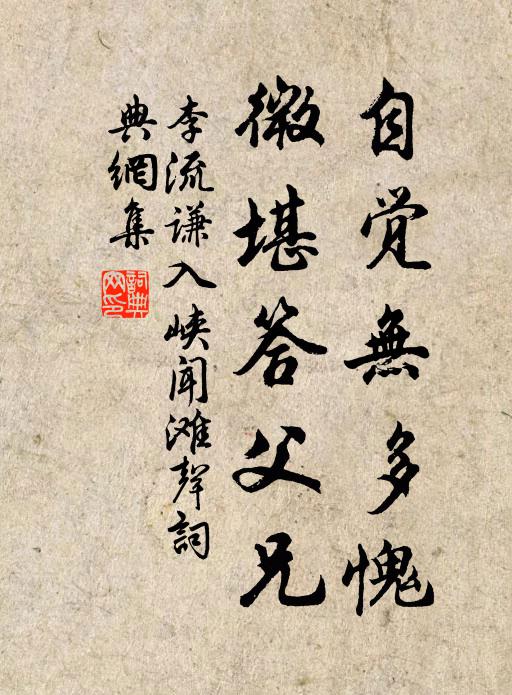 自觉無多愧
微堪答父兄
李流谦入峡闻滩聲詞
典網集
詞典网印